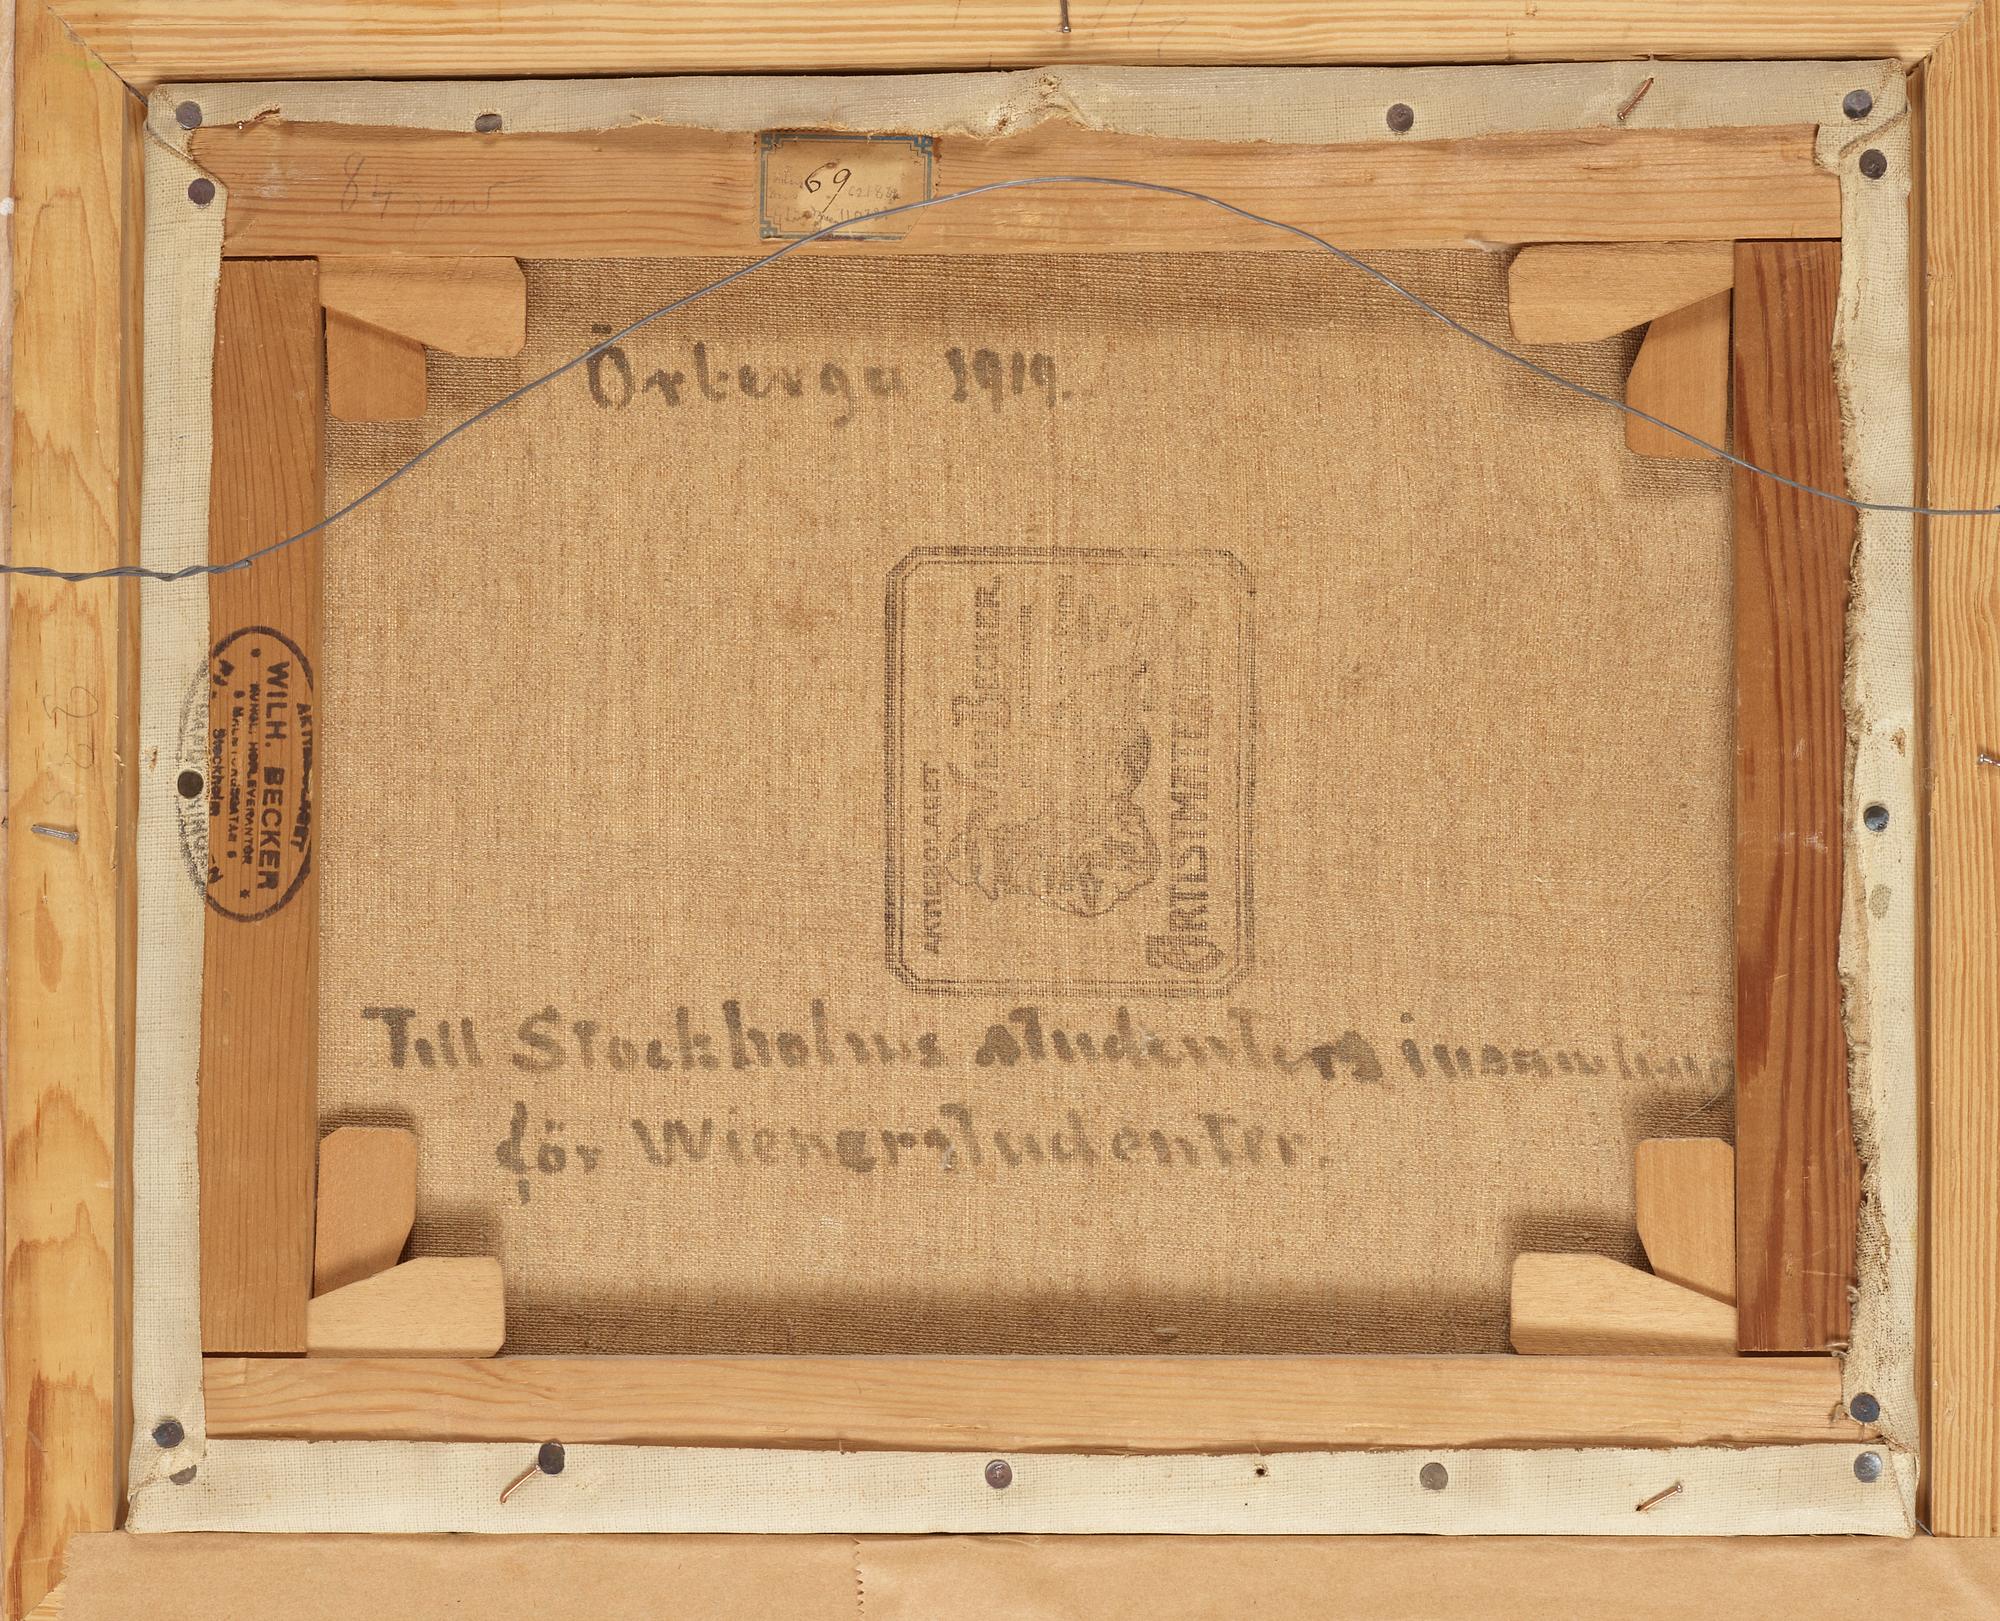 69
Örberga 1919.
AKTIEBOLAGET
WILH. BECKER
KUNGL. HOFLEVERANTÖR
Stockholm
AKTIEBOLAGET
WILH. BECKER
ARTISTMATE
Till Stockholms studenters insamling
för Wienerstudenter.